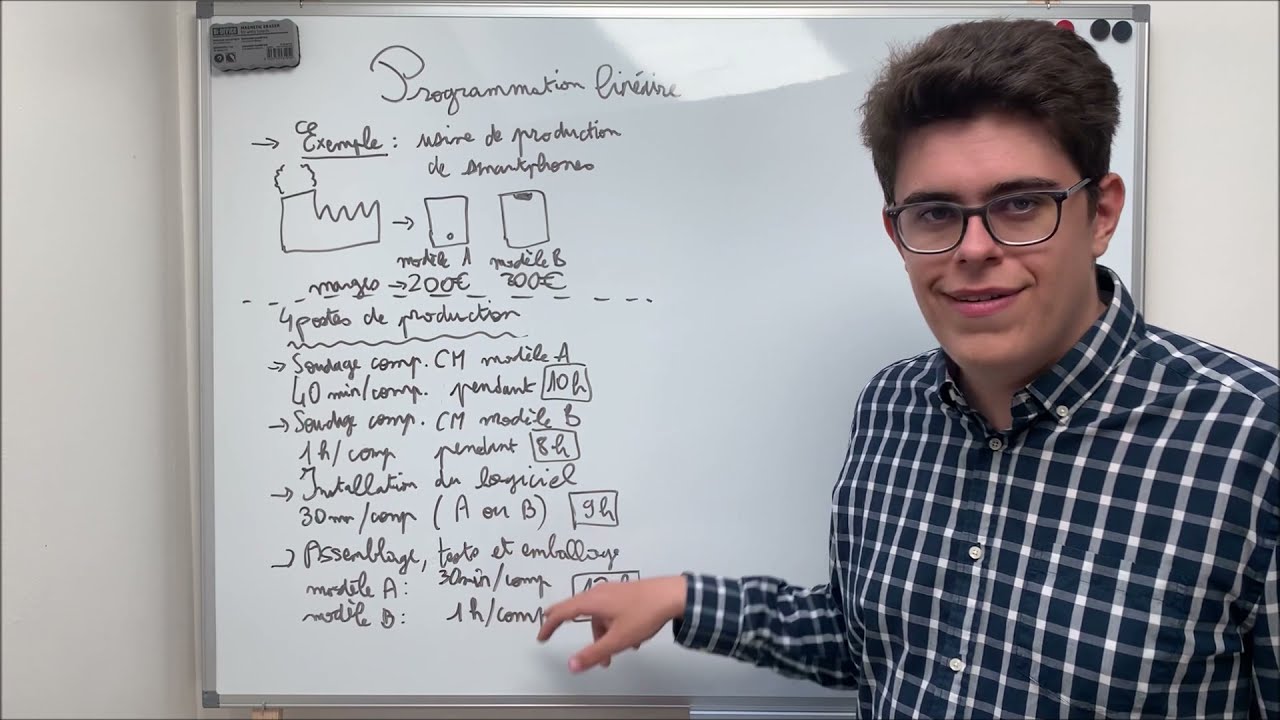 Programmation linéaire
→ Exemple : usine de production
de smartphones
modèle A modèle B
marges → 200€ 300€
4 postes de production
→ Soudage comp. CM modèle A
40 min/comp. pendant 10h
→ Soudage comp. CM modèle B
1h/comp pendant 8h
→ Installation du logiciel
30mn/comp (A ou B) 9h
→ Assemblage, tests et emballage
modèle A : 30min/comp
modèle B : 1h/comp